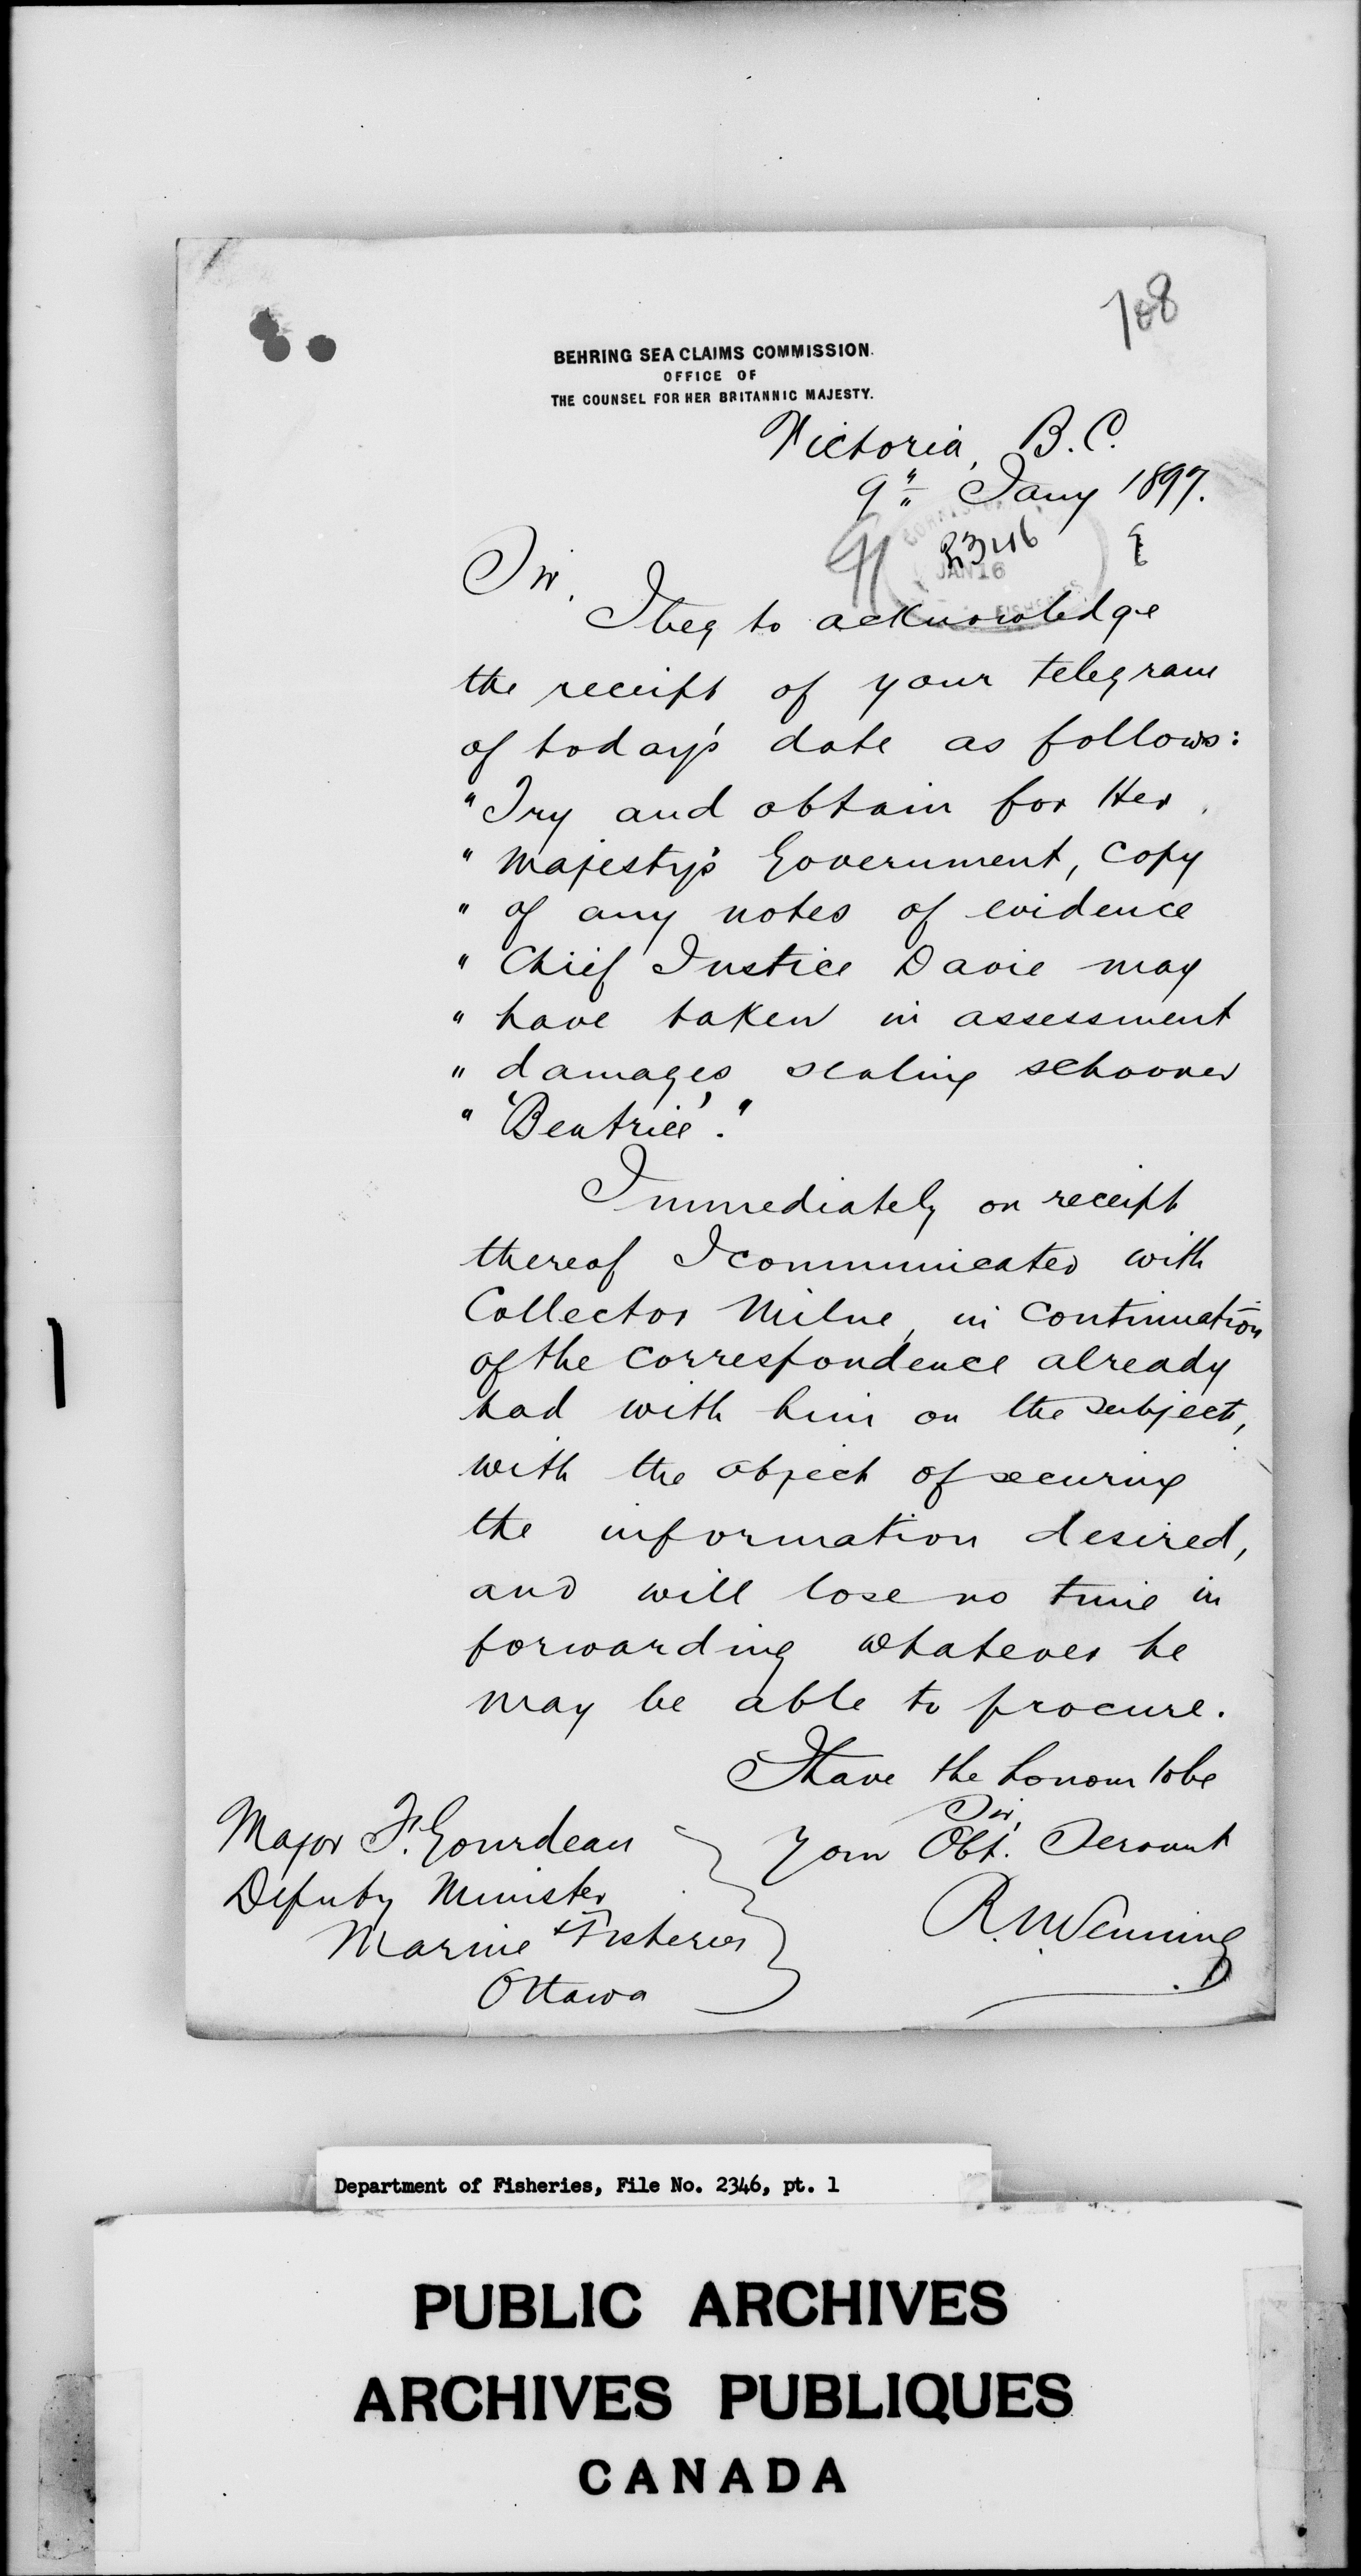 708
BEHRING SEA CLAIMS COMMISSION.
OFFICE OF
THE COUNSEL FOR HER BRITANNIC MAJESTY.
Victoria, B.C.
9th Jany 1897.
2346
JAN 16
FISHERIES
Sir,
I beg to acknowledge
the receipt of your telegram
of today's date as follows:
"Try and obtain for Her
" Majesty's Government, copy
" of any notes of evidence
" Chief Justice Davie may
" have taken in assessment
" damages sealing schooner
" 'Beatrice'."
Immediately on receipt
thereof I communicated with
Collector Milne, in continuation
of the correspondence already
had with him on the subject,
with the object of securing
the information desired,
and will lose no time in
forwarding whatever he
may be able to procure.
I have the honour to be
Sir,
Your Obt. Servant
R. N. Venning
Major F. Gourdeau
Deputy Minister
Marine & Fisheries
Ottawa
Department of Fisheries, File No. 2346, pt. 1
PUBLIC ARCHIVES
ARCHIVES PUBLIQUES
CANADA